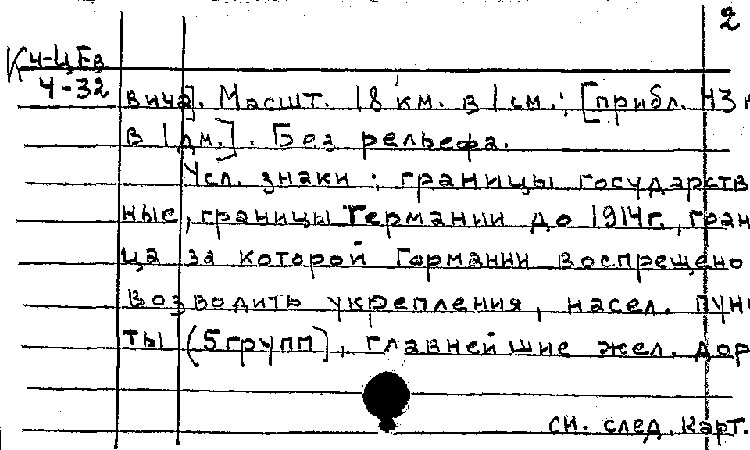 2
К 4-Ц Ев
4-32
вича]. Масшт. 18 км. в 1 см.; [прибл. 43
в 1 дм.]. Без рельефа.
Усл. знаки: границы государств
ные, границы Германии до 1914г., гран
ца за которой Германии воспрещено
возводить укрепления, насел. пун
ты (5 групп), главнейшие жел. дор
см. след. карт.